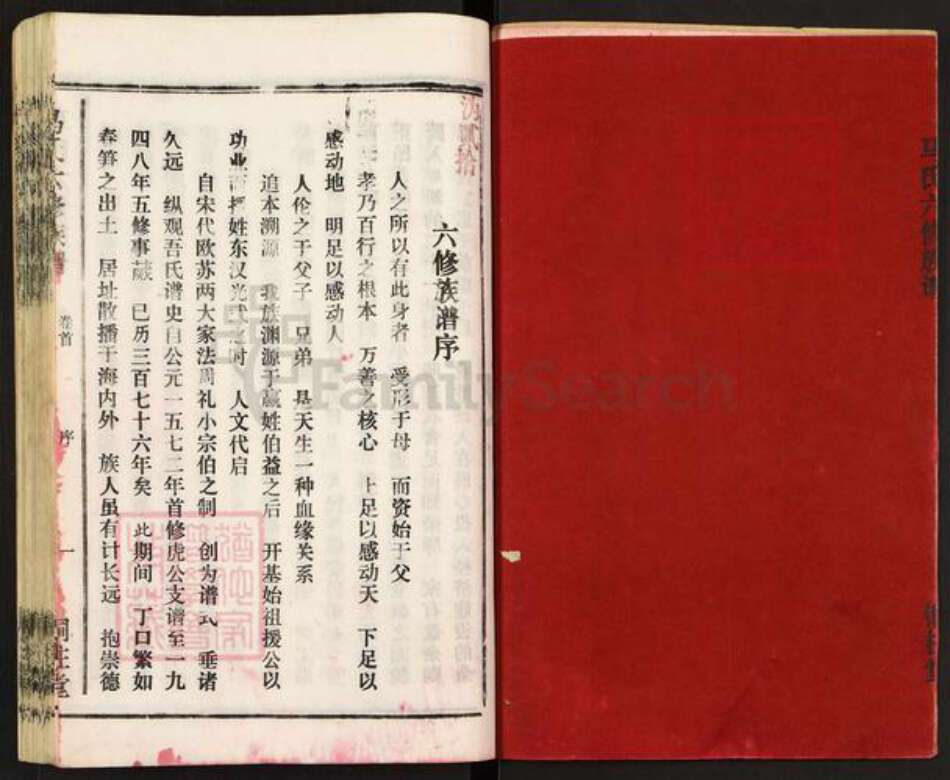 六修族谱序
人之所以有此身者 受形于母 而资始于父
孝乃百行之根本 万善之核心 上足以感动天 下足以
感动地 明足以感动人
人伦之于父子 兄弟 是天生一种血缘关系
追本溯源 我族渊源于嬴姓伯益之后 开基始祖援公以
功业 姓东汉光武之时 人文代启
自宋代欧苏两大家法周礼小宗伯之制 创为谱式 垂诸
久远 纵观吾氏谱史自公元一五七二年首修虎公支谱至一九
四八年五修事蒇 已历三百七十六年矣 此期间 丁口繁如
春笋之出土 居址散播于海内外 族人虽有计长远 抱崇德
卷首
序
一
铜柱堂
马氏六修族谱
FamilySearch